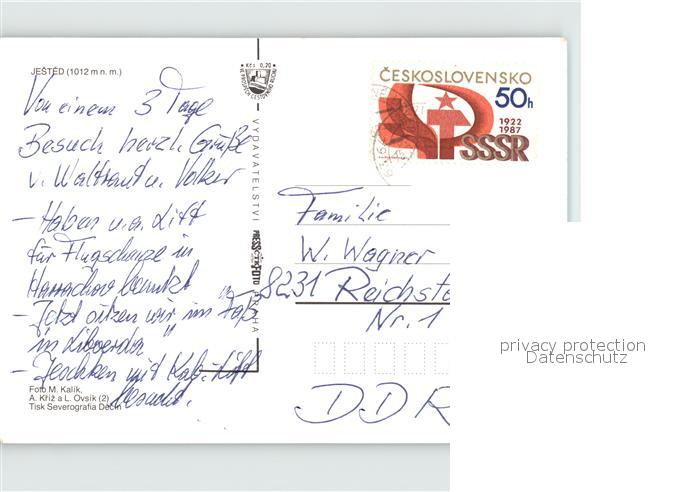 JEŠTĚD (1012 m n. m.)
Von einem 3 Tage
Besuch herzl. Grüße
v. Waltraut u. Volker
- Haben u.a. Lift
für Flugschanze in
Harrachov benutzt
- Jetzt sitzen wir im Faß
in
- Jeschken mit Kab.-Lift
besucht.
Foto M. Kalík,
A. Kříž a L. Ovsík (2)
Tisk Severografia Děčín
Kčs 0,20
VYDAVATELSTVÍ
PRESSFOTO
PRAHA
ČESKOSLOVENSKO
50h
1922
1987
SSSR
Familie
W. Wagner
8231 Reichst
Nr. 1
DDR
privacy protection
Datenschutz